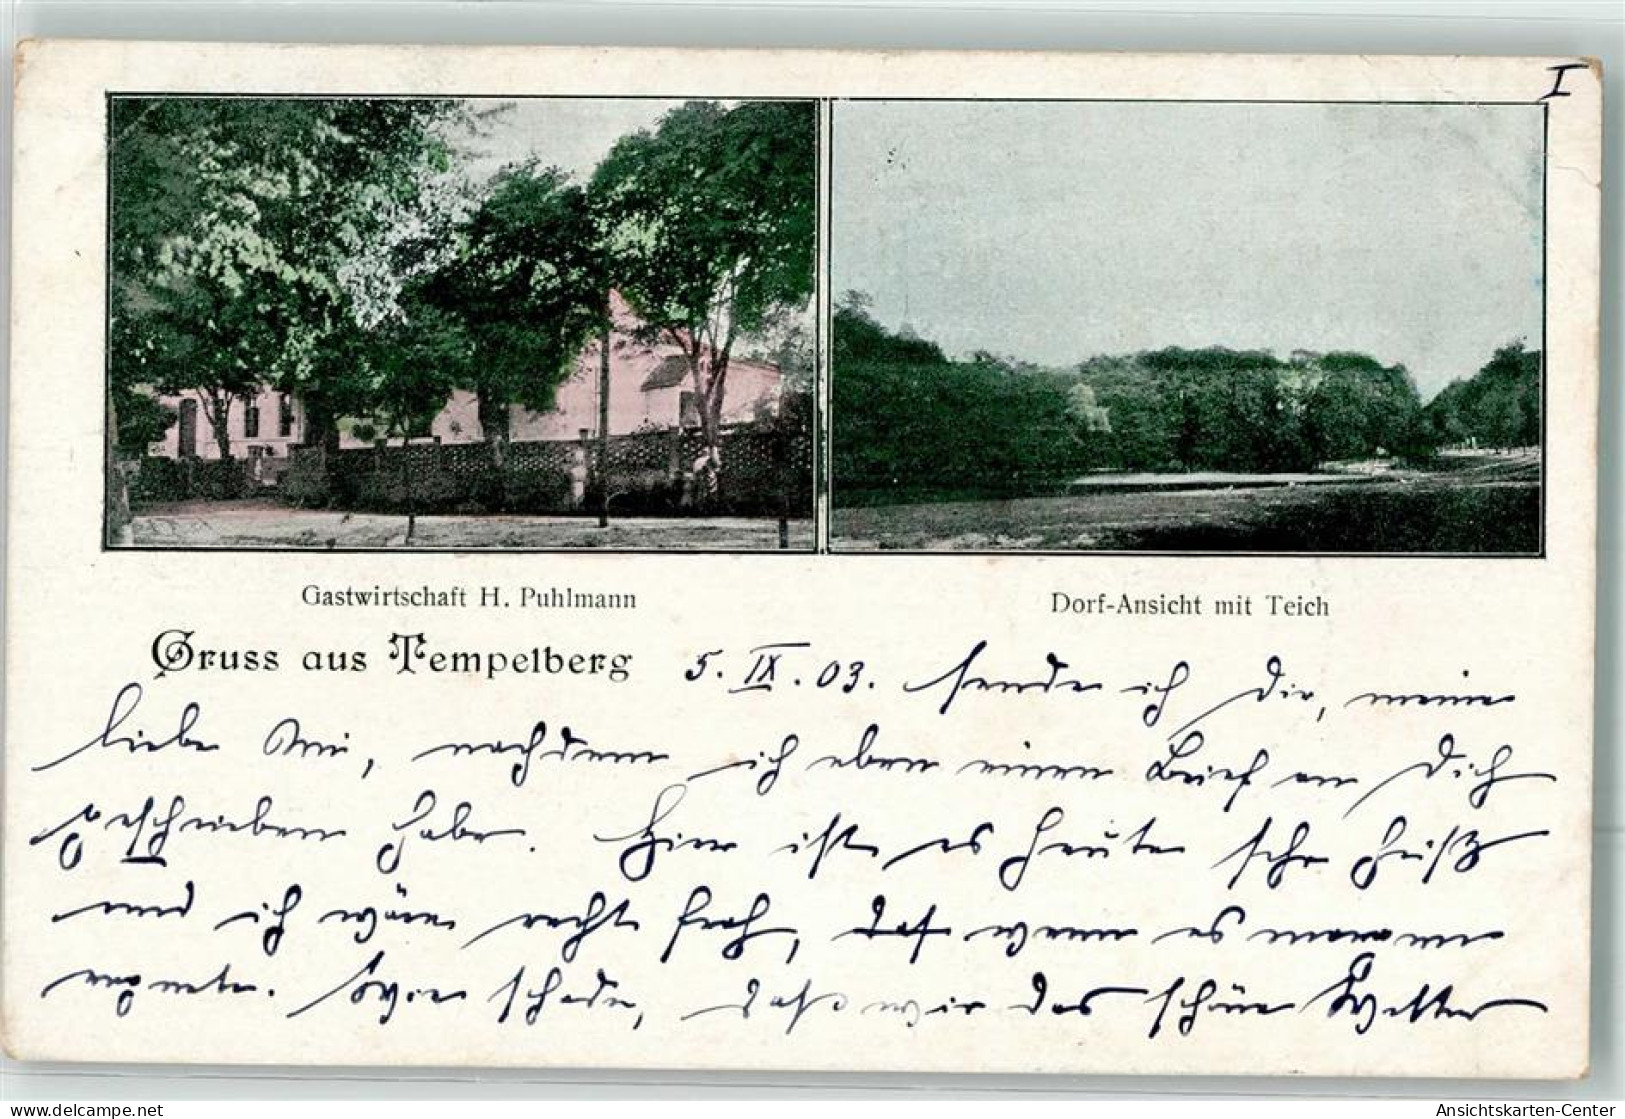 I
Gastwirtschaft H. Puhlmann
Dorf-Ansicht mit Teich
Gruss aus Tempelberg
5. IX. 03. sende ich Dir, meine
liebe Omi, nachdem ich eben einen Brief an Dich
geschrieben habe. Hier ist es heute sehr heiß
und ich wäre recht froh, daß wenn es morgen
regnete. Wie schade, daß wir das schöne Wetter
Ansichtskarten-Center